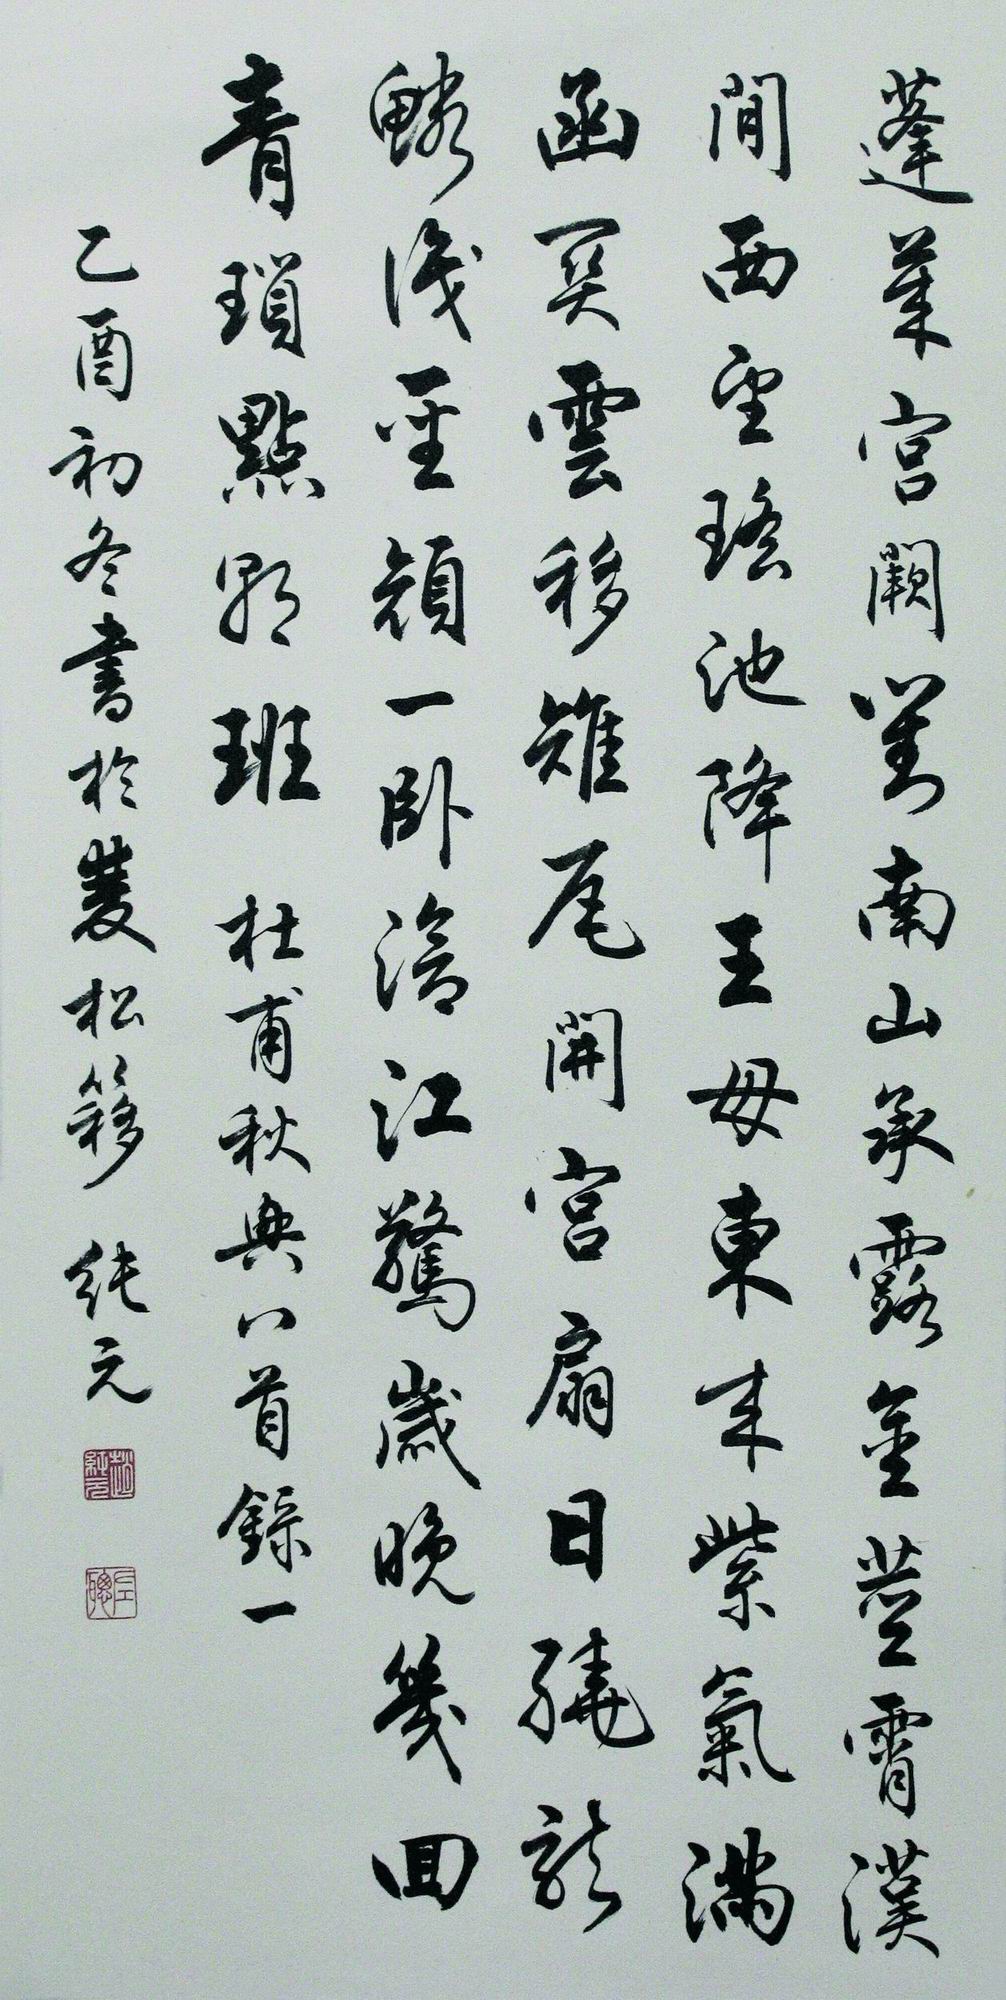 蓬萊宮闕對南山承露金莖霄漢
閒西望瑤池降王母東來紫氣滿
函關雲移雉尾開宮扇日繞龍
鱗識聖顏一卧滄江驚歲晚幾回
青瑣點朝班 杜甫秋興八首錄一
乙酉初冬書於雙松簃 純元
趙純元